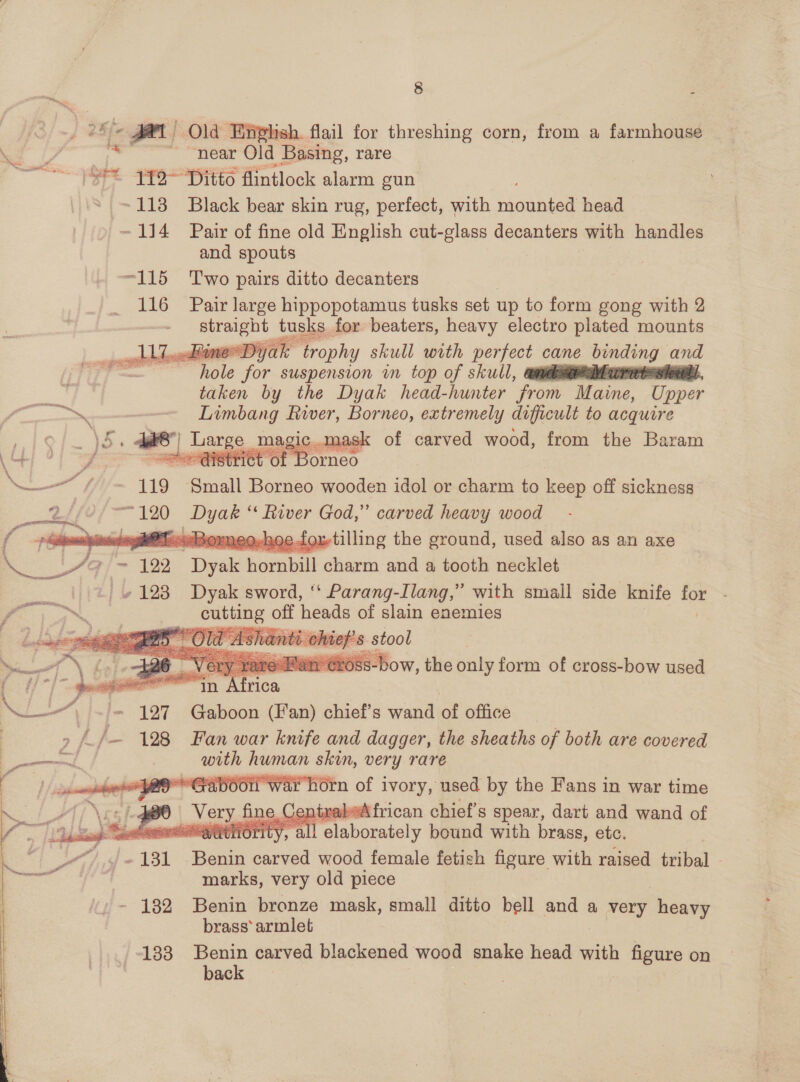 8
111 Old English flail for threshing corn, from a farmhouse
near Old Basing, rare
112 Ditto flintlock alarm gun
113 Black bear skin rug, perfect, with mounted head
114 Pair of fine old English cut-glass decanters with handles
and spouts
115 Two pairs ditto decanters
116 Pair large hippopotamus tusks set up to form gong with 2
straight tusks for beaters, heavy electro plated mounts
117 Fine Dyak trophy skull with perfect cane binding and
hole for suspension in top of skull, and a Murut skull,
taken by the Dyak head-hunter from Maine, Upper
Limbang River, Borneo, extremely difficult to acquire
118 Large magic mask of carved wood, from the Baram
district of Borneo
119 Small Borneo wooden idol or charm to keep off sickness
120 Dyak “ River God,” carved heavy wood
Borneo hoe for tilling the ground, used also as an axe
122 Dyak hornbill charm and a tooth necklet
123 Dyak sword, “ Parang-Ilang,” with small side knife for
cutting off heads of slain enemies
125 Old Ashanti chief's stool
126 Very rare Fan cross-bow, the only form of cross-bow used
in Africa
127 Gaboon (Fan) chief's wand of office
128 Fan war knife and dagger, the sheaths of both are covered
with human skin, very rare
129 Gaboon war horn of ivory, used by the Fans in war time
130 Very fine Central African chief's spear, dart and wand of
authority, all elaborately bound with brass, etc.
131 Benin carved wood female fetish figure with raised tribal
marks, very old piece
132 Benin bronze mask, small ditto bell and a very heavy
brass armlet
133 Benin carved blackened wood snake head with figure on
back